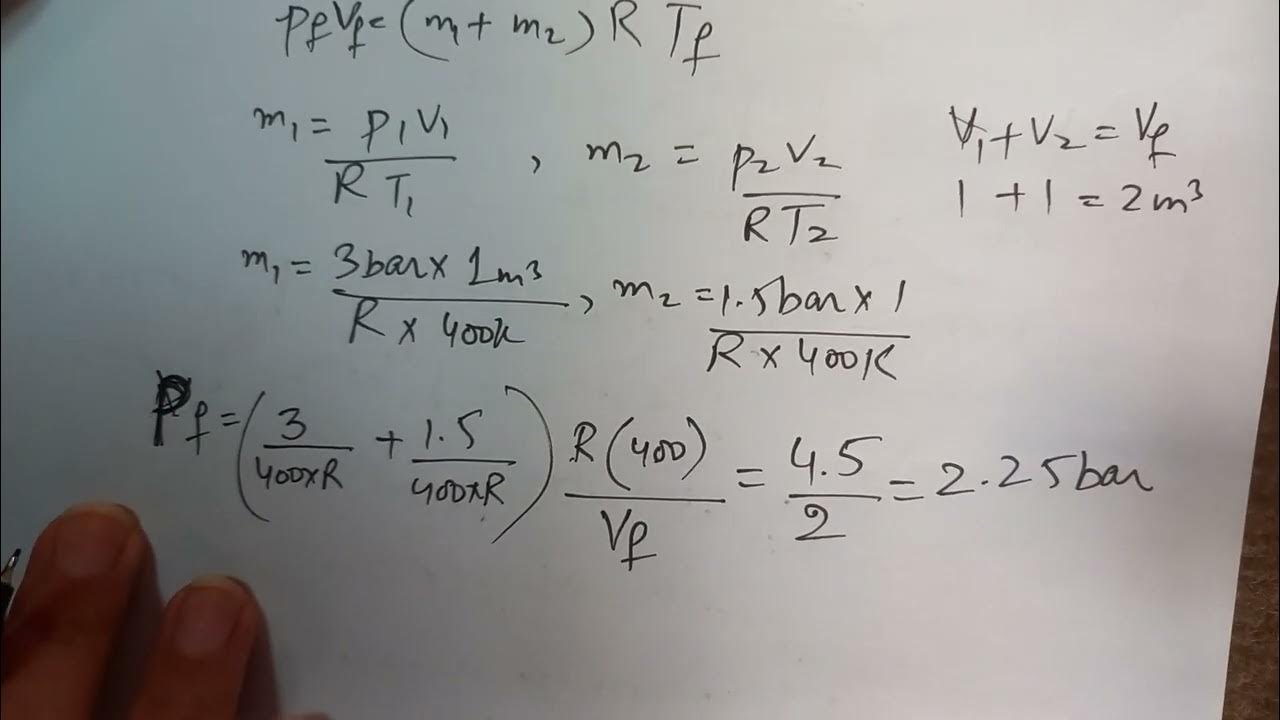 PfVf = (m₁ + m₂) R Tf
m₁ = P₁V₁ / RT₁ , m₂ = P₂V₂ / RT₂
V₁ + V₂ = Vf
1 + 1 = 2m³
m₁ = 3bar × 1m³ / R × 400K , m₂ = 1.5bar × 1 / R × 400K
Pf = (3 / 400×R + 1.5 / 400×R) R(400) / Vf = 4.5 / 2 = 2.25bar